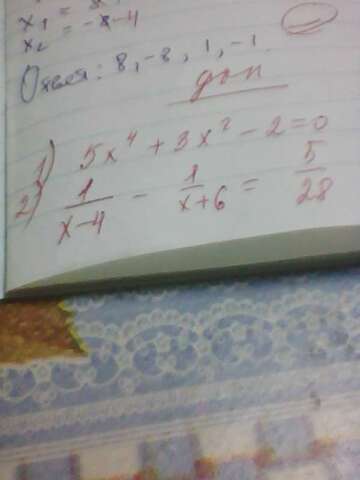 x₁ = 8,
x₂ = -x-4
Ответ: 8, -8, 1, -1.
доп
1) 5x⁴ + 3x² - 2 = 0
2) 1/(x-4) - 1/(x+6) = 5/28